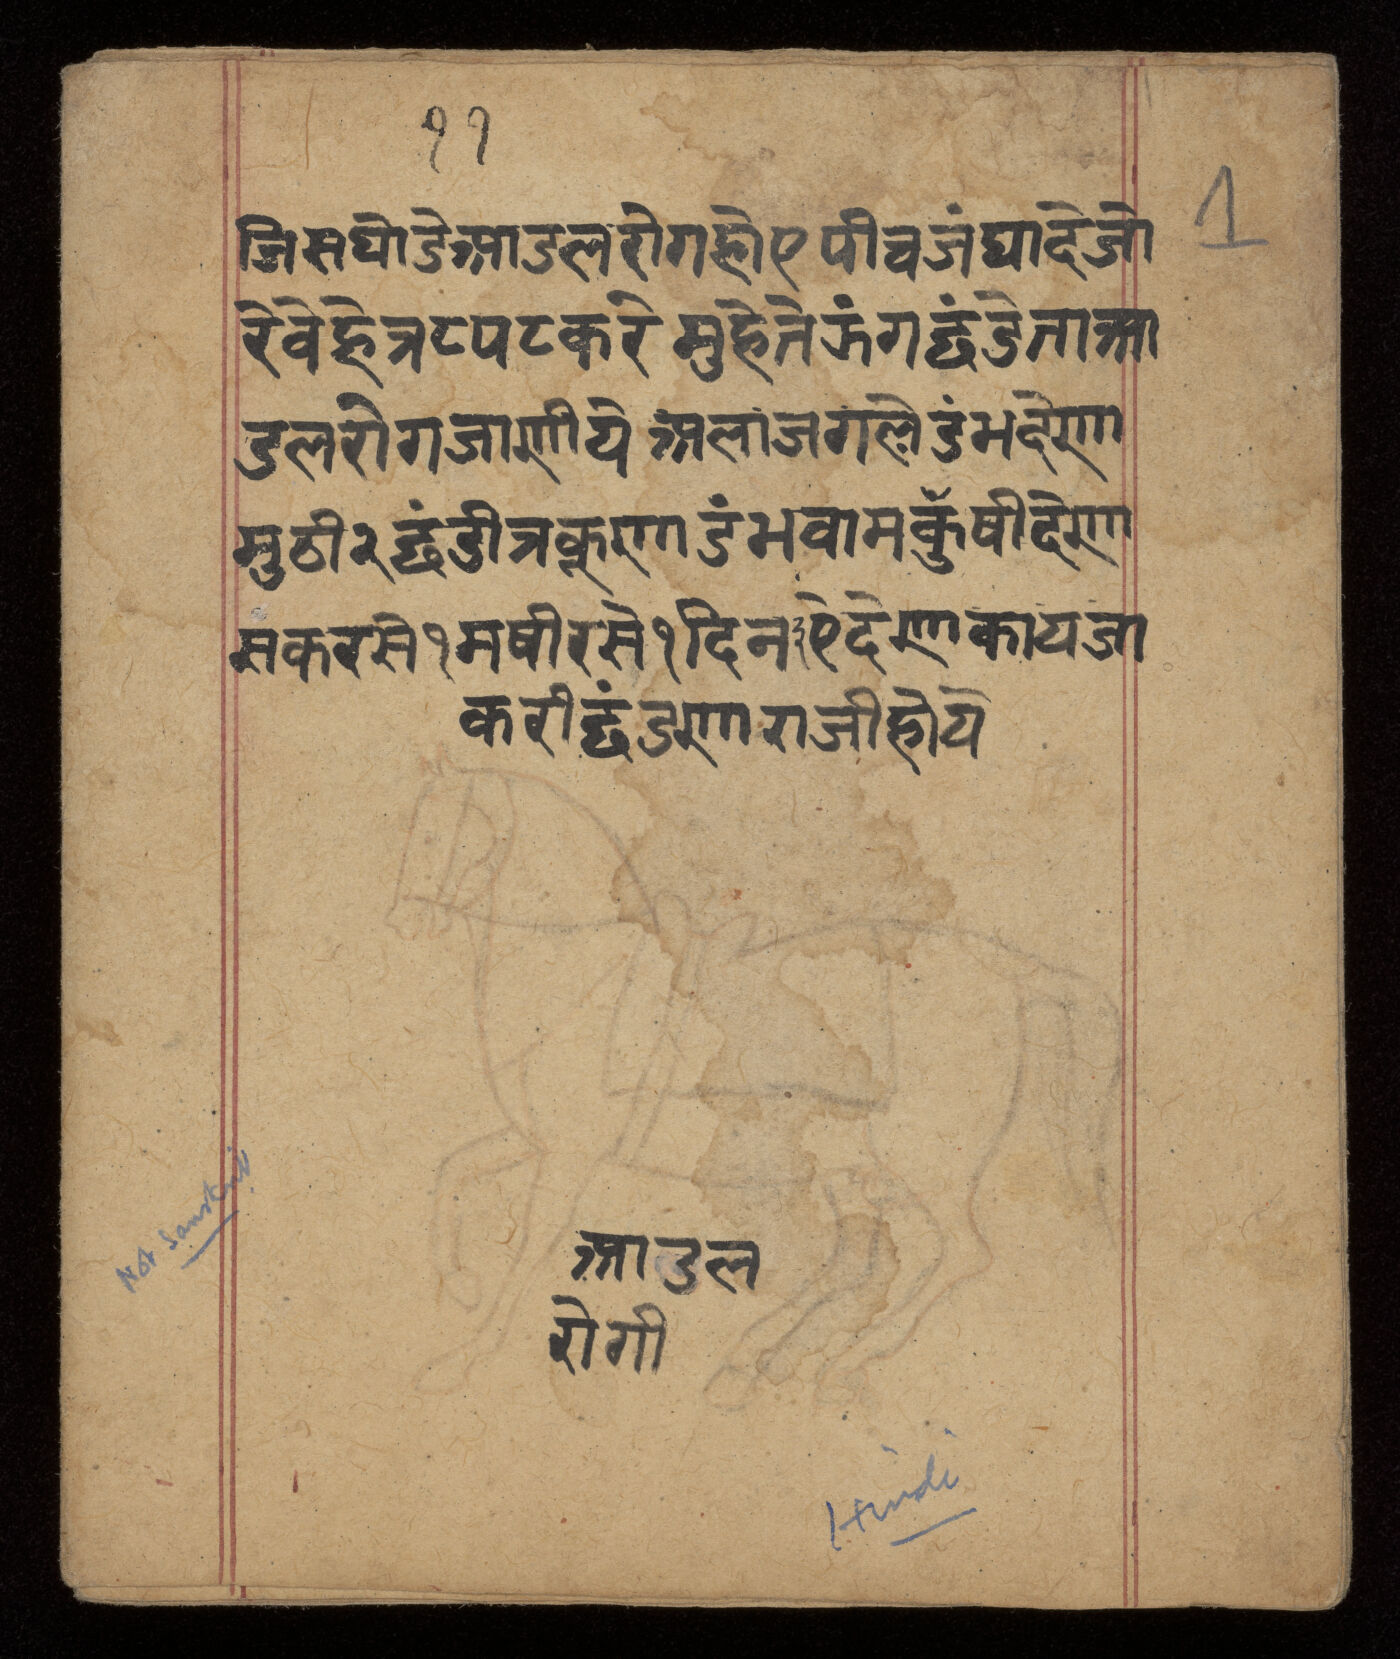 ११
1
जिसघोडेआडलरोगहोएपीवजंघादेजो
रेवेहेत्रटपटकरे मुहेतेऊंगद्धंडेताआ
डलरोगजाणीये अलाजगलेडंभदेणा
मुठी२द्धंडीत्रकूणाडंभवामकुँषीदेणा
सकरसे१मषीरसे१दिन देणाकायजा
करीद्धंडणाराजीहोये
Not Sanskrit
आडल
रोगी
Hindi